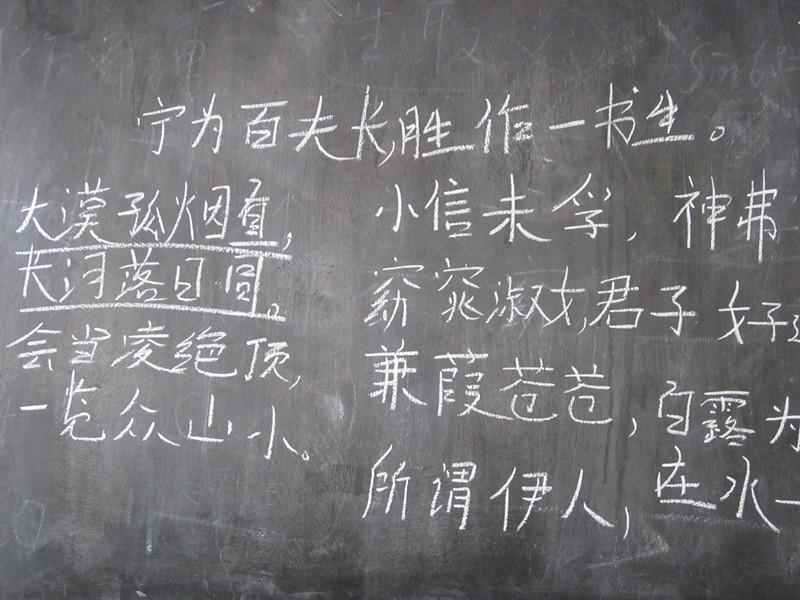 宁为百夫长,胜作一书生。
大漠孤烟直,
长河落日圆。
会当凌绝顶,
一览众山小。
小信未孚,神弗
窈窕淑女,君子好
蒹葭苍苍,白露为
所谓伊人,在水一